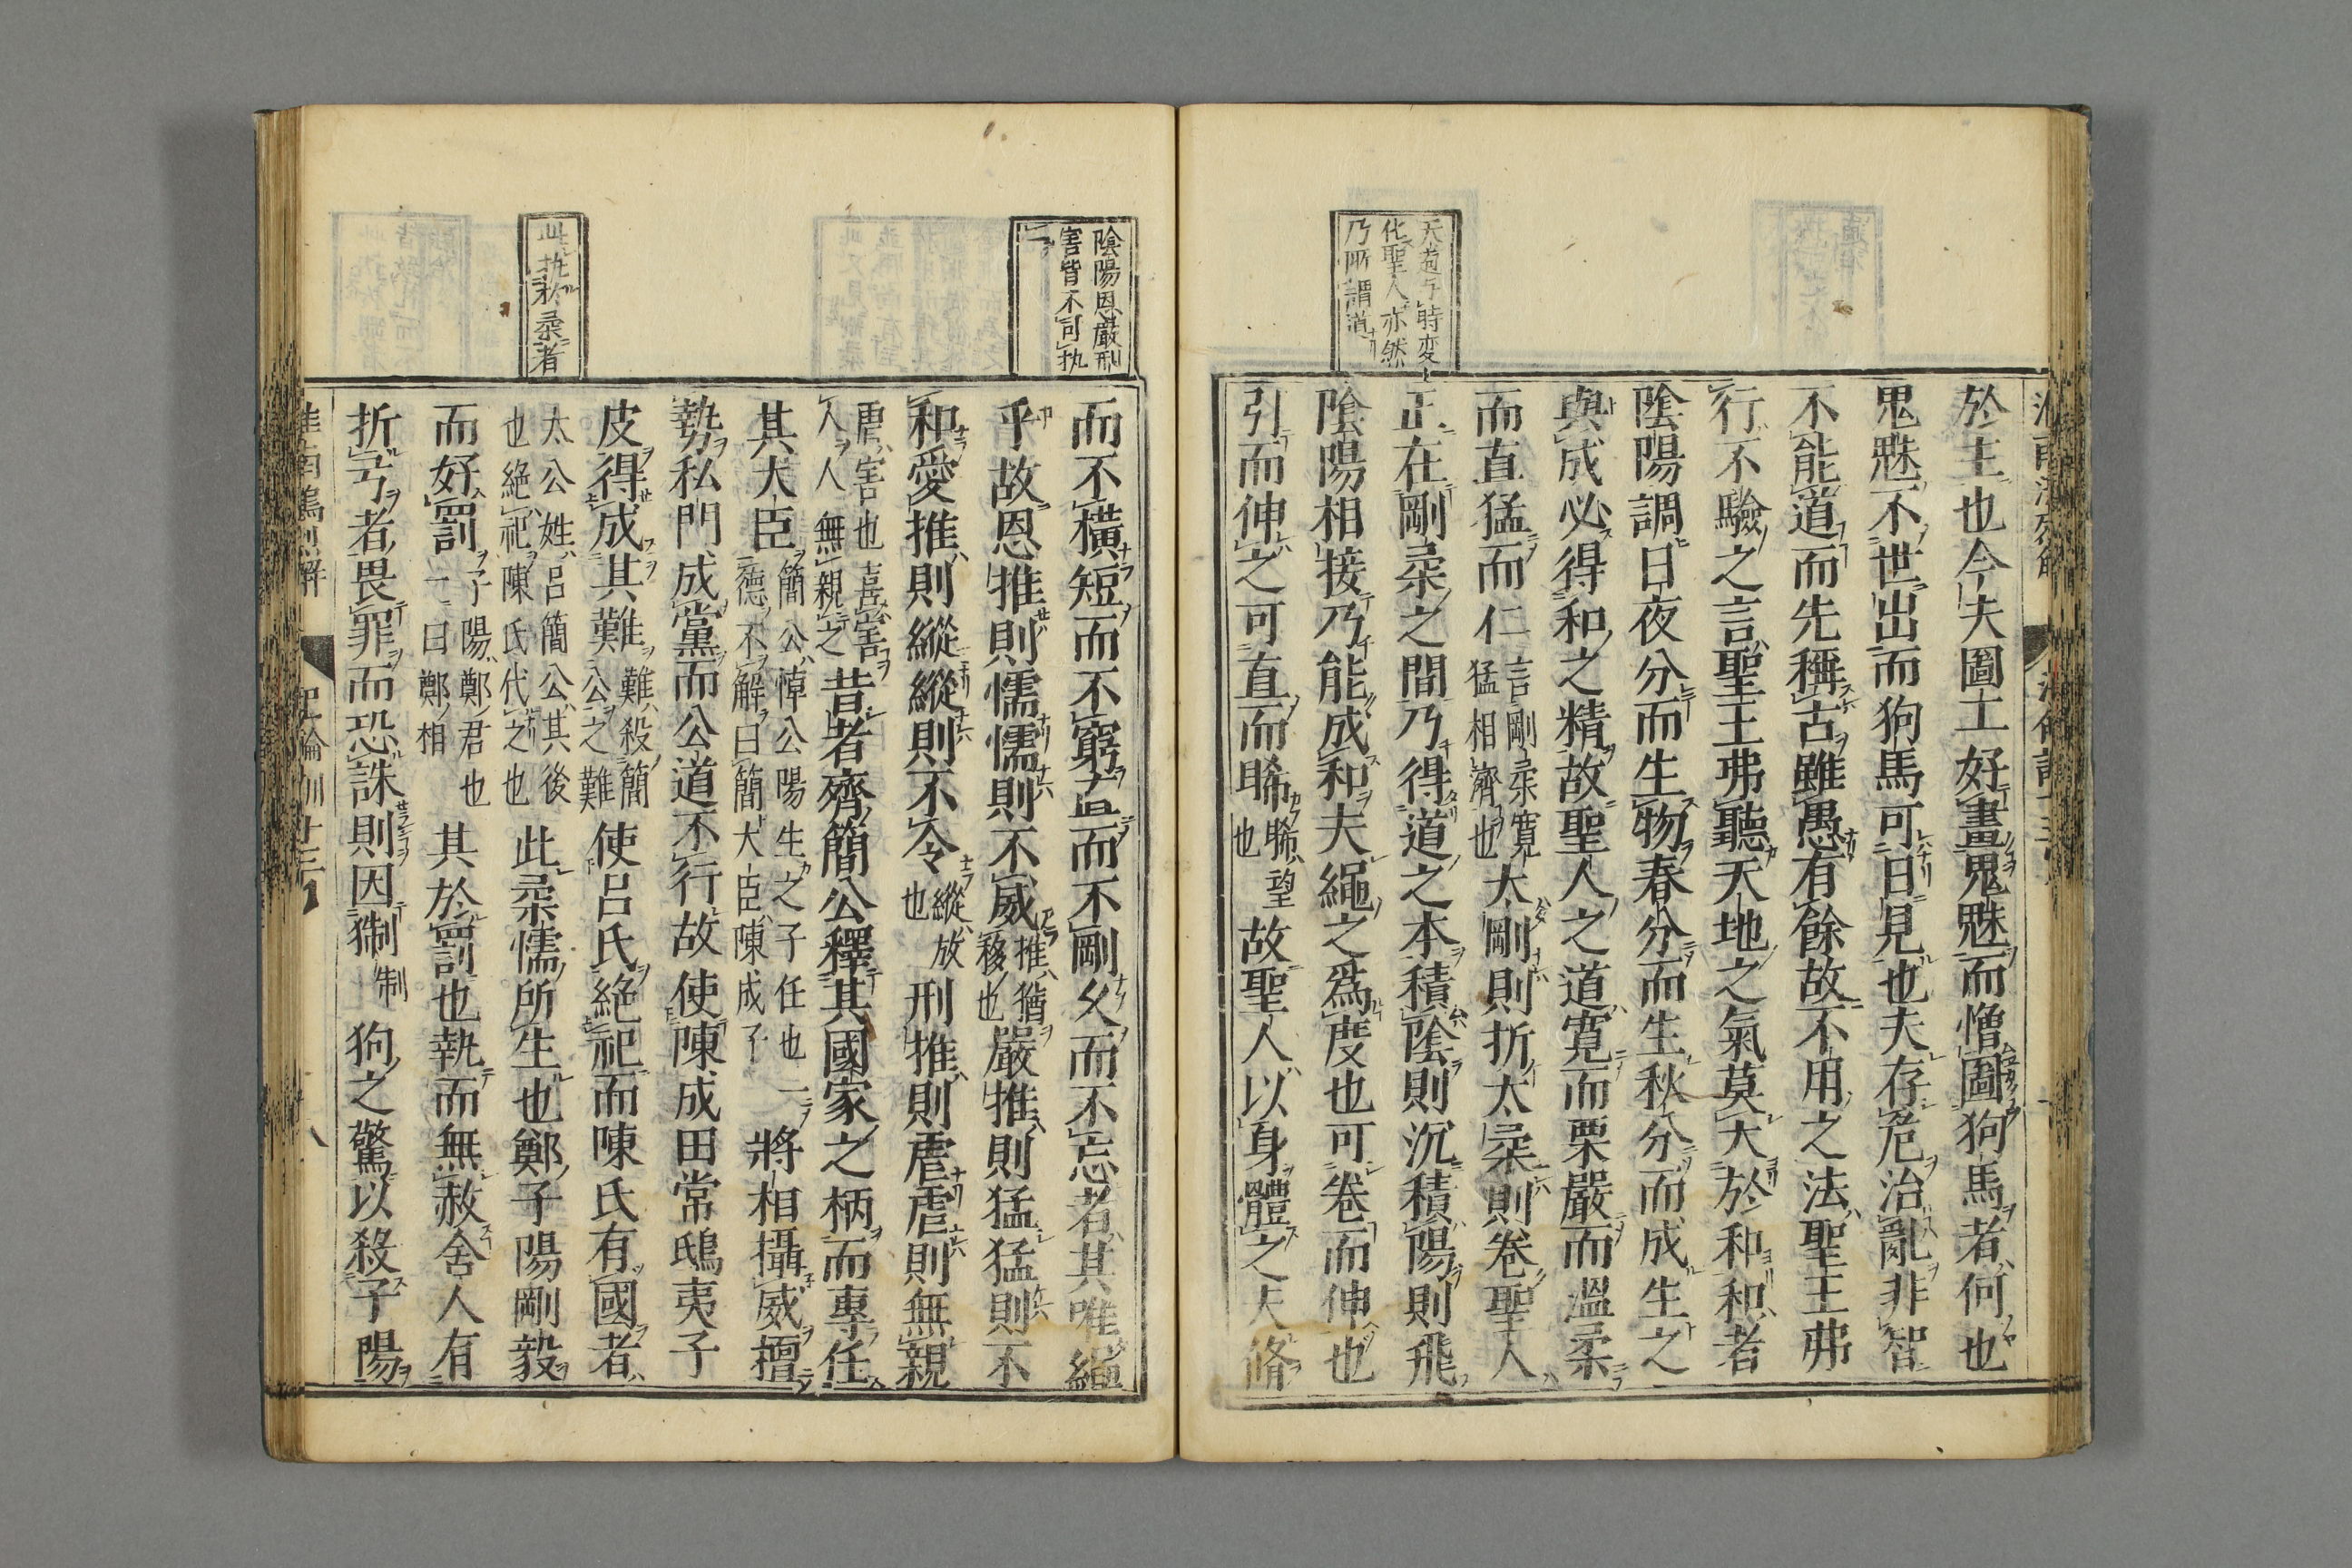 天道与時変
化聖人亦然
乃所謂道
於王也今夫圖工好畫鬼魅而憎圖狗馬者何也
鬼魅不世出而狗馬可日見也夫存危治亂非智
不能道而先稱古雖愚有餘故不用之法聖王弗
行不驗之言聖王弗聽天地之氣莫大於和和者
陰陽調日夜分而生物春分而生秋分而成生之
與成必得和之精故聖人之道寬而栗嚴而溫柔
而直猛而仁言剛柔寬猛相濟也太剛則折太柔則卷聖人
正在剛柔之間乃得道之本積陰則沉積陽則飛
陰陽相接乃能成和夫繩之爲度也可卷而伸也
引而伸之可直而睎睎望也故聖人以身體之夫脩
陰陽恩嚴刑
害皆不可执
一
此执於柔者
而不橫短而不窮直而不剛久而不忘者其唯繩
乎故恩推則懦懦則不威推猶移也嚴推則猛猛則不
和愛推則縱縱則不令縱放也刑推則虐虐則無親
虐害也喜害人人無親之昔者齊簡公釋其國家之柄而專任
其大臣簡公悼公陽生之子任也一德不解曰簡大臣陳成子將相攝威擅
勢私門成黨而公道不行故使陳成田常鴟夷子
皮得成其難難殺簡公之難使呂氏絕祀而陳氏有國者
太公姓呂簡公其後也絕祀陳氏代之也此柔懦所生也鄭子陽剛毅
而好罰子陽鄭君也一曰鄭相其於罰也執而無赦舍人有
折弓者畏罪而恐誅則因猘制狗之驚以殺子陽
淮南鴻烈解
氾論訓十三
八